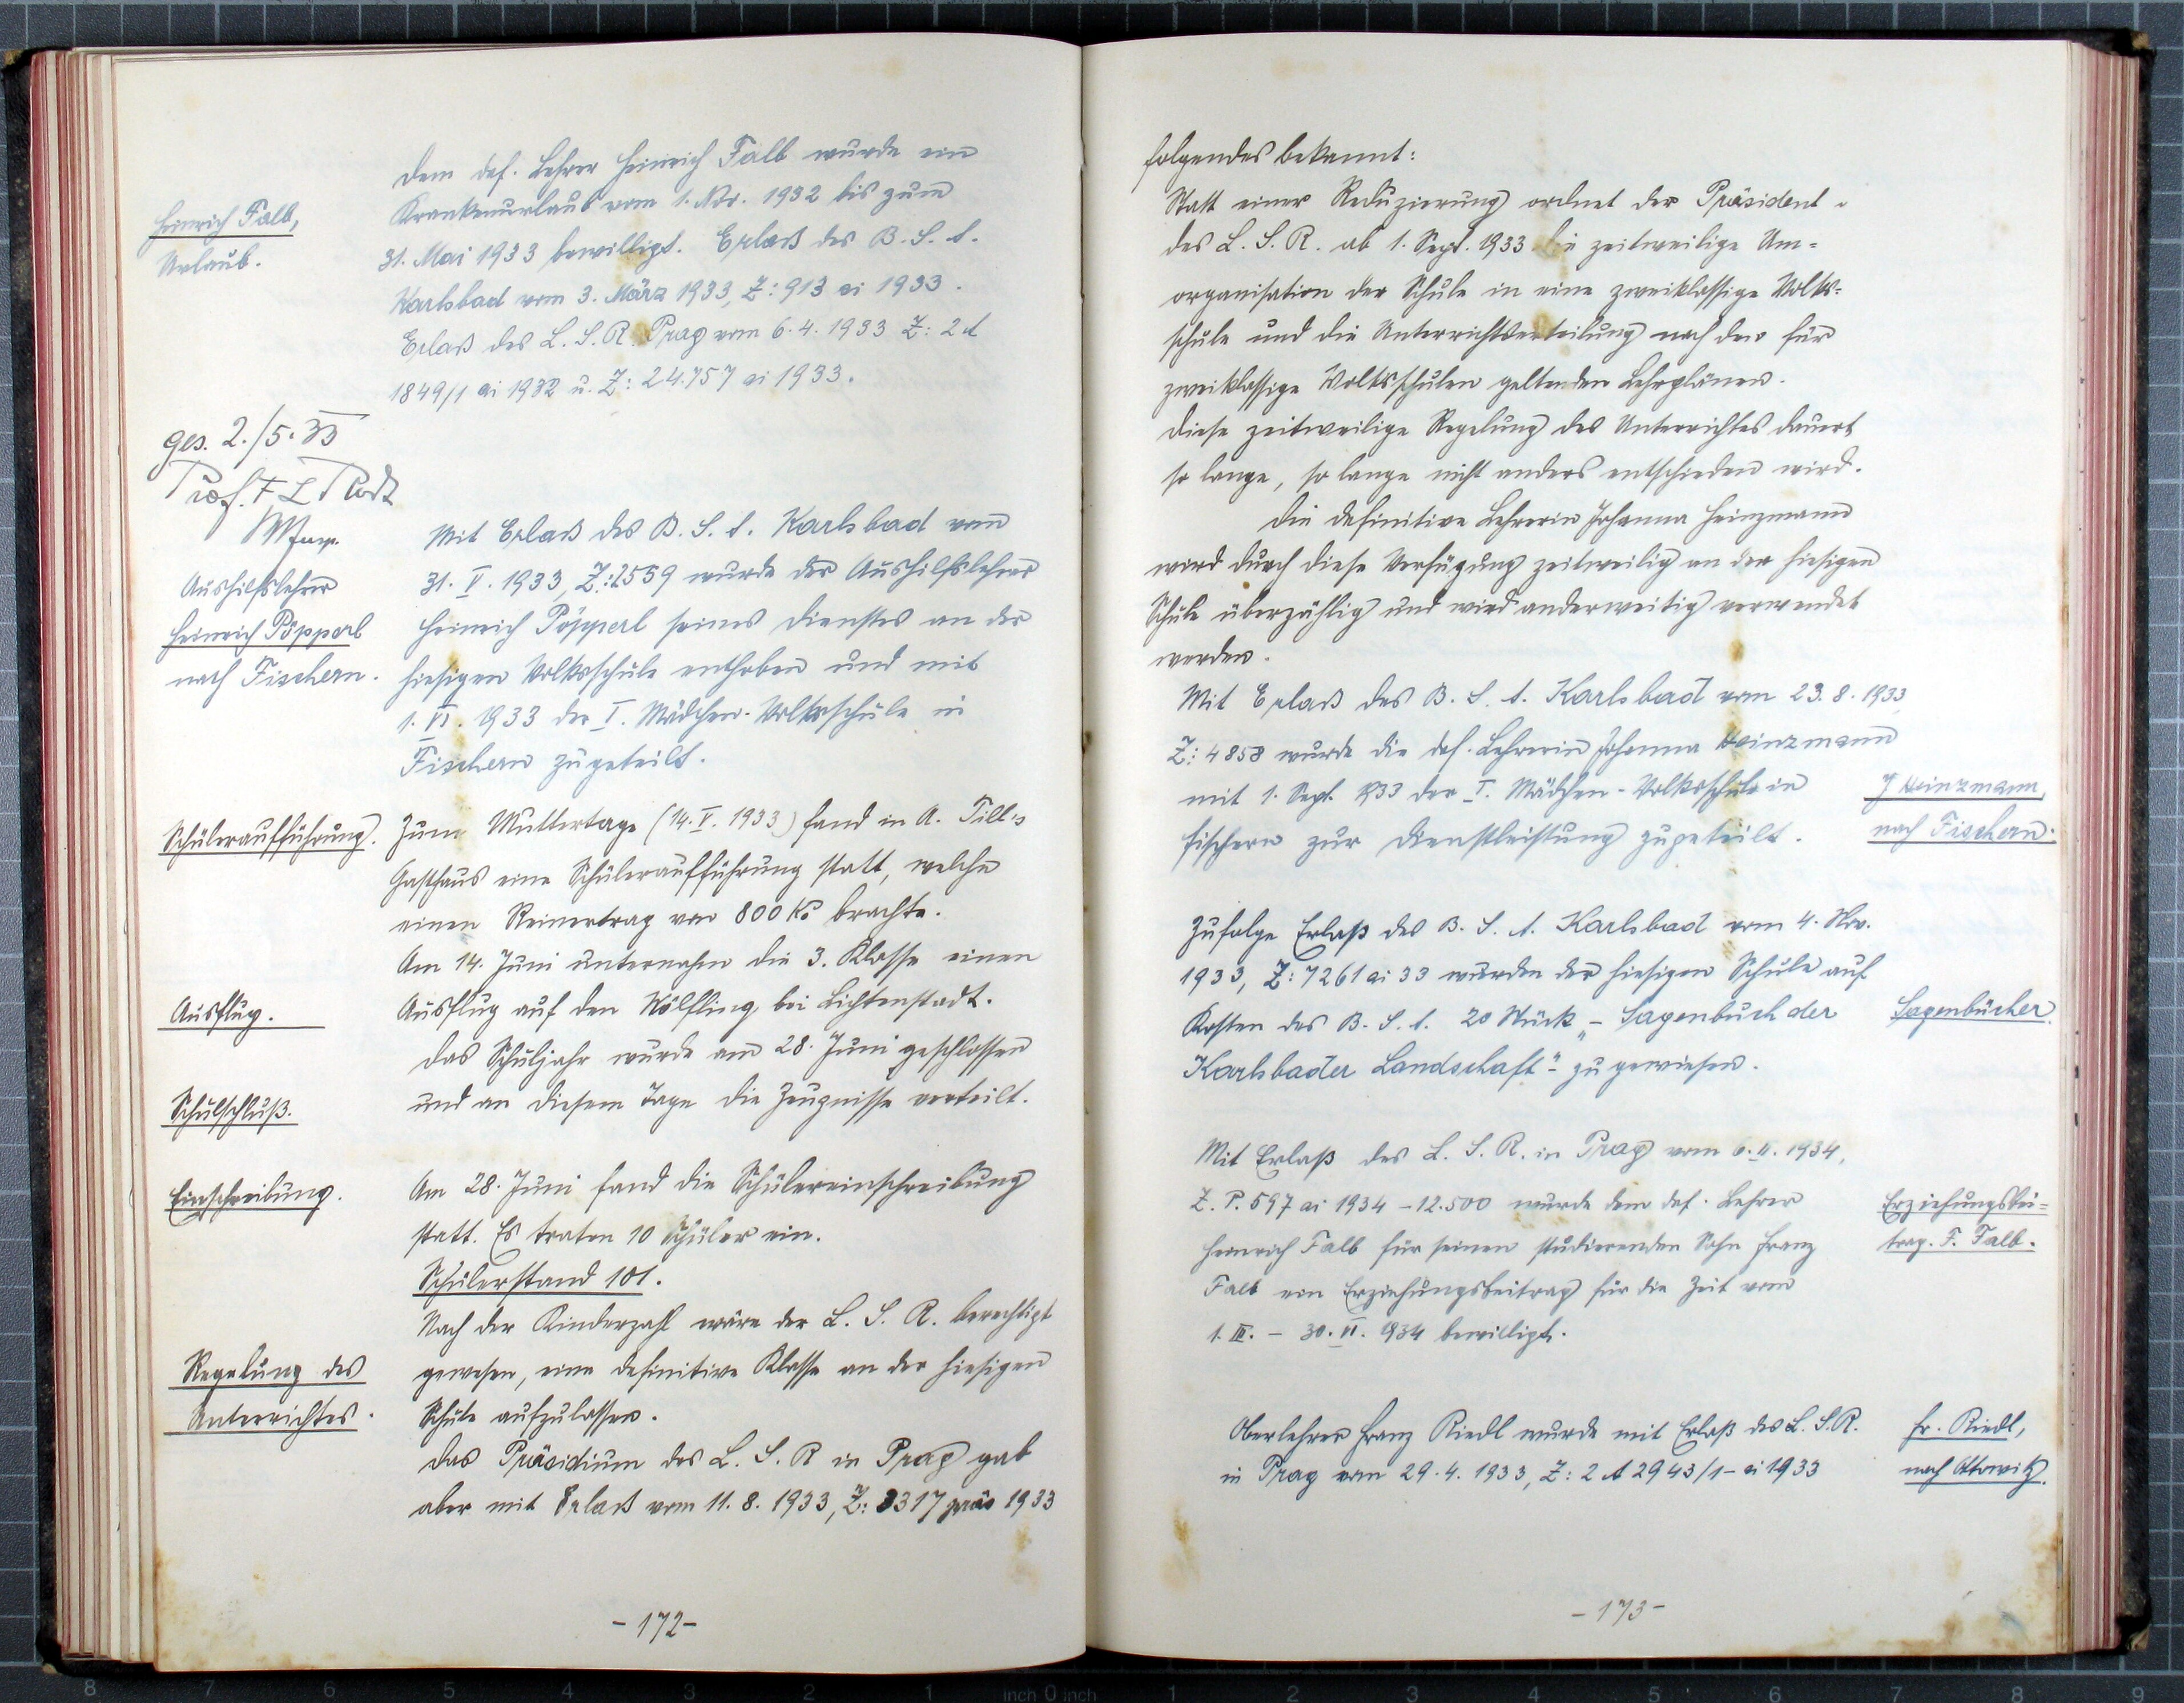 Heinrich Falb,
Urlaub.
Dem def. Lehrer Heinrich Falb wurde ein
Krankenurlaub vom 1. Nov. 1932 bis zum
31. Mai 1933 bewilligt. Erlass des B. S. A.
Karlsbad vom 3. März 1933, Z: 913 ai 1933.
Erlass des L. S. R. Prag vom 6. 4. 1933 Z: 2 A
1849/1 ai 1932 u. Z: 24.757 ai 1933.
ges. 2./5. 33
Prof.
Insp.
Aushilfslehrer
Heinrich Pöpperl
nach Fischern.
Mit Erlass des B. S. A. Karlsbad vom
31. V. 1933, Z: 2559 wurde der Aushilfslehrer
Heinrich Pöpperl seines Dienstes an der
hiesigen Volksschule enthoben und mit
1. VI. 1933 der I. Mädchen-Volksschule in
Fischern zugeteilt.
Schüleraufführung.
Zum Muttertage (14. V. 1933) fand in A. Till's
Gasthaus eine Schüleraufführung statt, welche
einen Reinertrag von 800 Kč brachte.
Am 14. Juni unternahm die 3. Klasse einen
Ausflug.
Ausflug auf den Wölfling bei Lichtenstadt.
Das Schuljahr wurde am 28. Juni geschlossen
Schulschluß.
und an diesem Tage die Zeugnisse verteilt.
Einschreibung.
Am 28. Juni fand die Schülereinschreibung
statt. Es traten 10 Schüler ein.
Schülerstand 101.
Nach der Kinderzahl wäre der L. S. R. berechtigt
Regelung des
Unterrichtes.
gewesen, eine definitive Klasse an der hiesigen
Schule aufzulassen.
Das Präsidium des L. S. R in Prag gab
aber mit Erlass vom 11. 8. 1933, Z: 3317 präs 1933
- 172 -
folgendes bekannt:
Statt einer Reduzierung ordnet der Präsident
des L. S. R. ab 1. Sept. 1933 die zeitweilige Um-
organisation der Schule in eine zweiklassige Volks-
schule und die Unterrichtserteilung nach den für
zweiklassige Volksschulen geltenden Lehrplänen.
Diese zeitweilige Regelung des Unterrichtes dauert
so lange, so lange nicht anders entschieden wird.
Die definitive Lehrerin Johanna Heinzmann
wird durch diese Verfügung zeitweilig an der hiesigen
Schule überzählig und wird anderweitig verwendet
werden.
Mit Erlass des B. S. A. Karlsbad vom 23. 8. 1933
Z: 4858 wurde die def. Lehrerin Johanna Heinzmann
mit 1. Sept. 1933 der I. Mädchen-Volksschule in
Fischern zur Dienstleistung zugeteilt.
J Heinzmann,
nach Fischern.
Zufolge Erlaß des B. S. A. Karlsbad vom 4. Nov.
1933, Z: 7261 ai 33 wurden der hiesigen Schule auf
Kosten des B. S. A. 20 Stück „Sagenbuch der
Karlsbader Landschaft" zugewiesen.
Sagenbücher.
Mit Erlaß des L. S. R. in Prag vom 6. II. 1934,
Z. P. 597 ai 1934 - 12.500 wurde dem def. Lehrer
Heinrich Falb für seinen studierenden Sohn Franz
Falb ein Erziehungsbeitrag für die Zeit vom
1. III. - 30. VI. 1934 bewilligt.
Erziehungsbei-
trag. F. Falb.
Oberlehrer Franz Riedl wurde mit Erlaß des L. S. R.
in Prag vom 29. 4. 1933, Z: 2 A 2943/1 - ai 1933
Fr. Riedl,
nach Ottowitz.
- 173 -
8 7 6 5 4 3 2 1 inch 0 inch 1 2 3 4 5 6 7 8 9